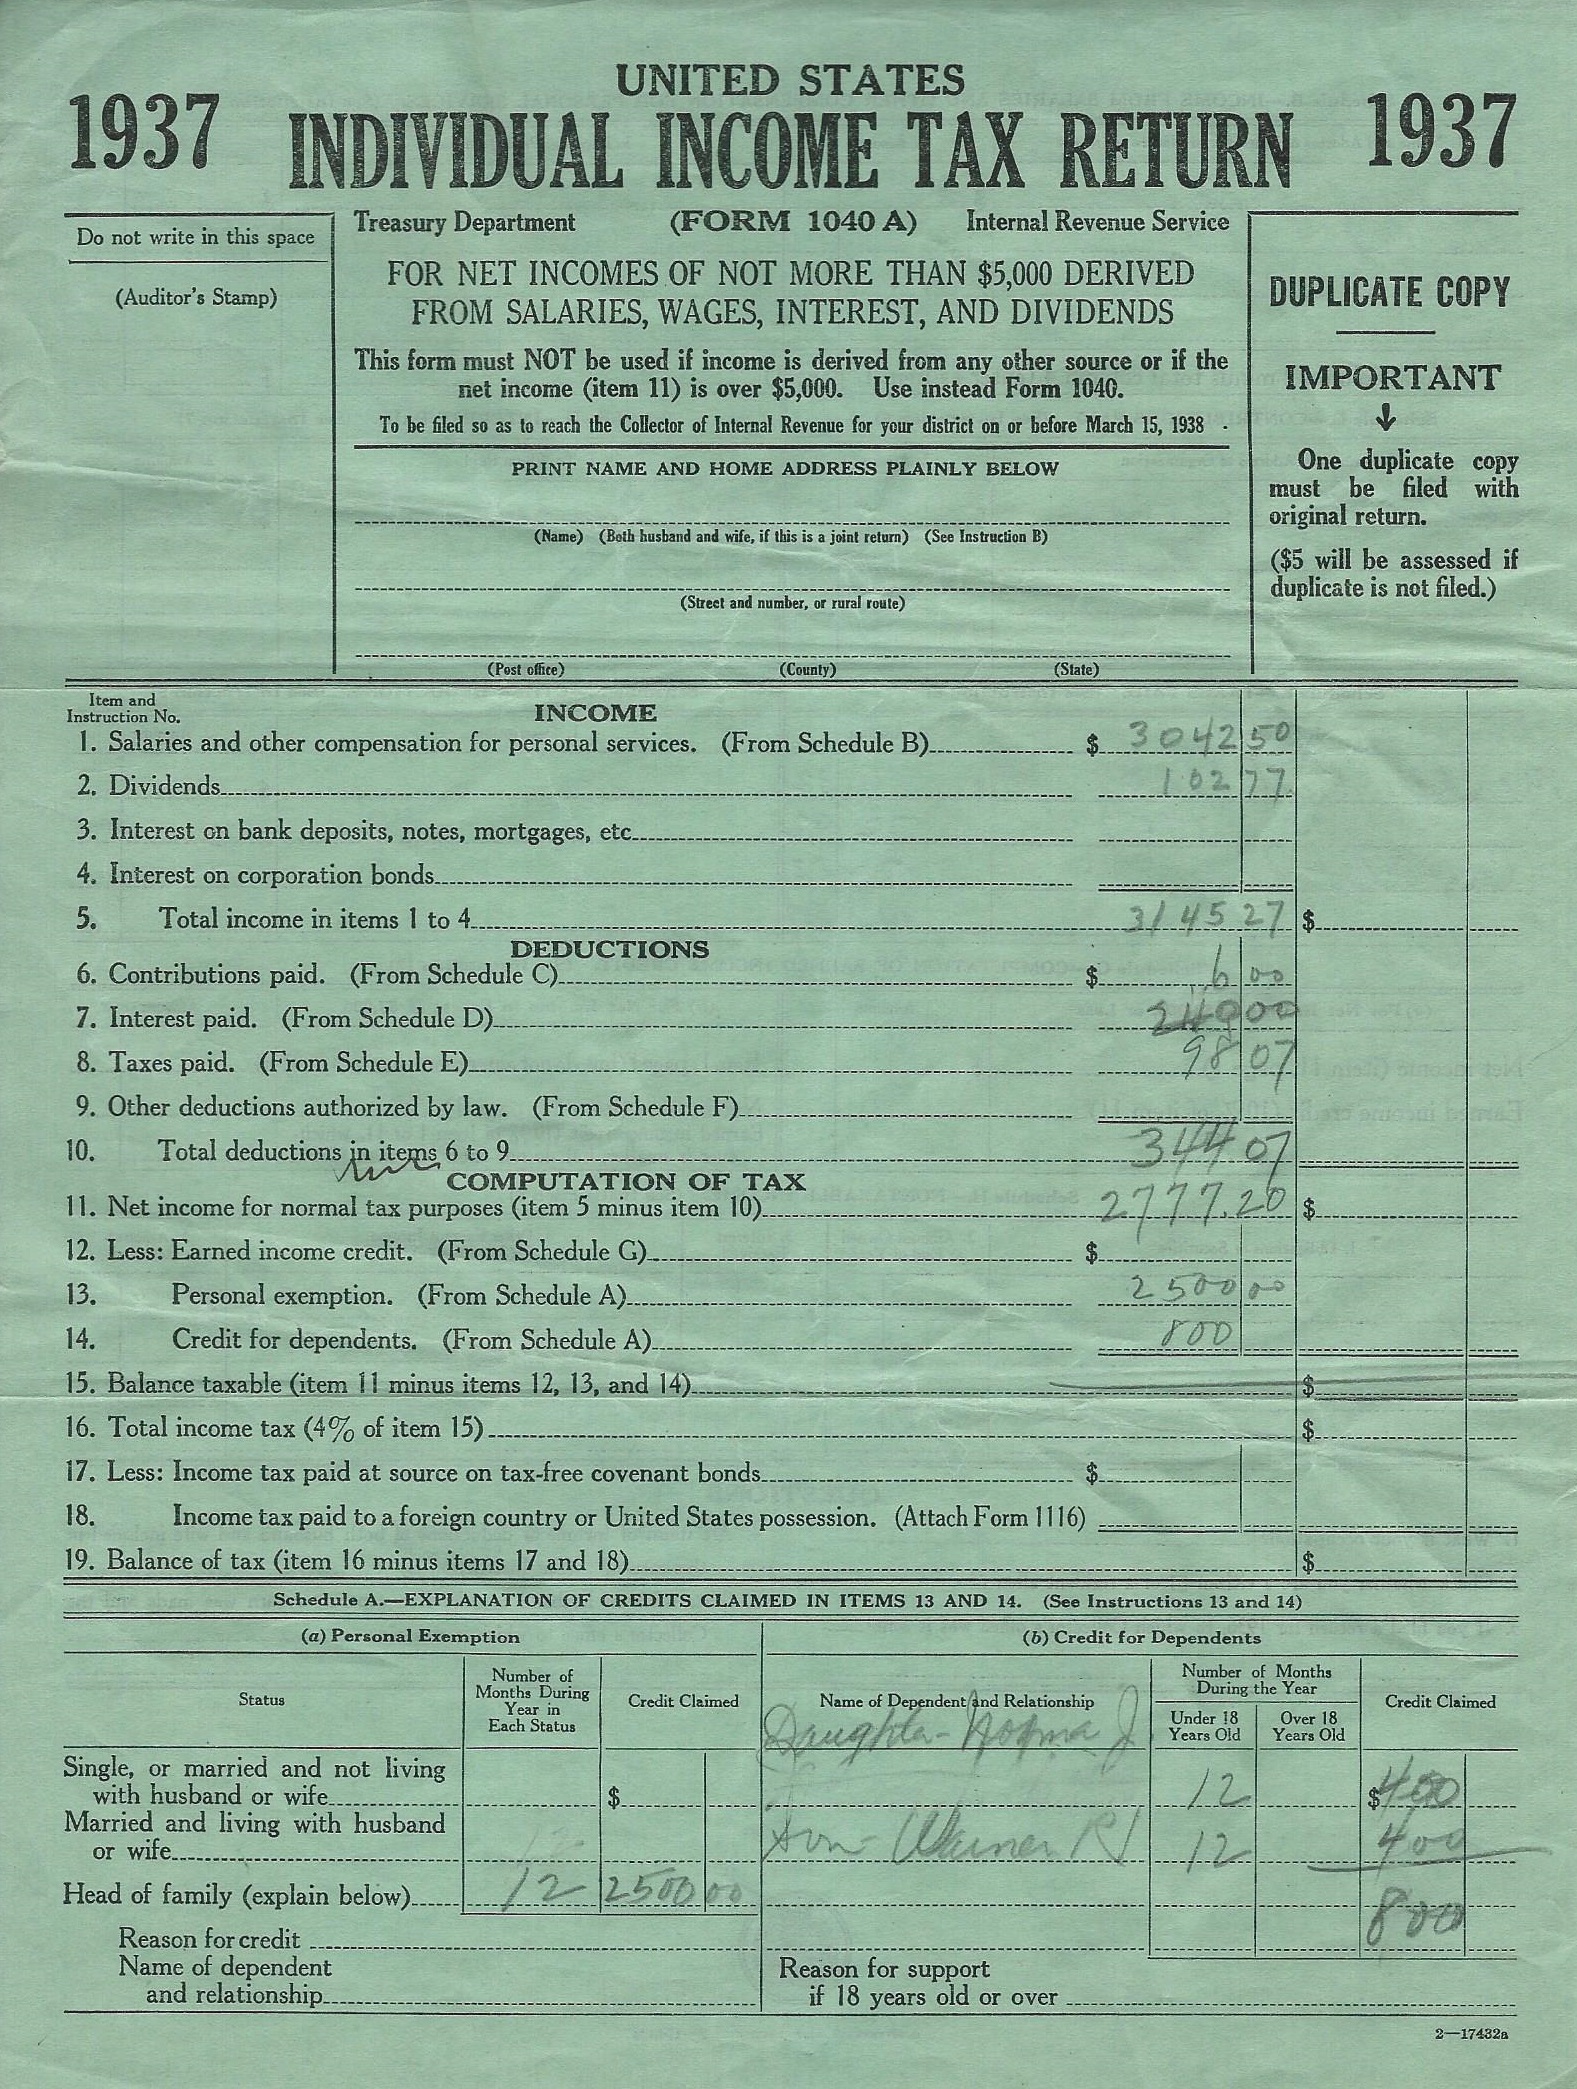 UNITED STATES
1937 INDIVIDUAL INCOME TAX RETURN 1937
Do not write in this space
(Auditor's Stamp)
Treasury Department (FORM 1040 A) Internal Revenue Service
FOR NET INCOMES OF NOT MORE THAN $5,000 DERIVED
FROM SALARIES, WAGES, INTEREST, AND DIVIDENDS
This form must NOT be used if income is derived from any other source or if the
net income (item 11) is over $5,000. Use instead Form 1040.
To be filed so as to reach the Collector of Internal Revenue for your district on or before March 15, 1938
PRINT NAME AND HOME ADDRESS PLAINLY BELOW
(Name) (Both husband and wife, if this is a joint return) (See Instruction B)
(Street and number, or rural route)
(Post office) (County) (State)
DUPLICATE COPY
IMPORTANT
One duplicate copy
must be filed with
original return.
($5 will be assessed if
duplicate is not filed.)
Item and
Instruction No.
INCOME
1. Salaries and other compensation for personal services. (From Schedule B) $ 3042 50
2. Dividends 102 77
3. Interest on bank deposits, notes, mortgages, etc.
4. Interest on corporation bonds
5. Total income in items 1 to 4 3145 27 $
DEDUCTIONS
6. Contributions paid. (From Schedule C) $ 6 00
7. Interest paid. (From Schedule D) 240 00
8. Taxes paid. (From Schedule E) 98 07
9. Other deductions authorized by law. (From Schedule F)
10. Total deductions in items 6 to 9 344 07
COMPUTATION OF TAX
11. Net income for normal tax purposes (item 5 minus item 10) 2777.20 $
12. Less: Earned income credit. (From Schedule G) $
13. Personal exemption. (From Schedule A) 2500 00
14. Credit for dependents. (From Schedule A) 800
15. Balance taxable (item 11 minus items 12, 13, and 14) $
16. Total income tax (4% of item 15) $
17. Less: Income tax paid at source on tax-free covenant bonds $
18. Income tax paid to a foreign country or United States possession. (Attach Form 1116)
19. Balance of tax (item 16 minus items 17 and 18) $
Schedule A.—EXPLANATION OF CREDITS CLAIMED IN ITEMS 13 AND 14. (See Instructions 13 and 14)
(a) Personal Exemption
Status
Number of
Months During
Year in
Each Status
Credit Claimed
Single, or married and not living
with husband or wife $
Married and living with husband
or wife
Head of family (explain below) 12 2500 00
Reason for credit
Name of dependent
and relationship
(b) Credit for Dependents
Name of Dependent and Relationship
Number of Months
During the Year
Under 18
Years Old
Over 18
Years Old
Credit Claimed
Daughter - Norma J 12 $400
Son - Warner R 12 400
800
Reason for support
if 18 years old or over
2—17432a